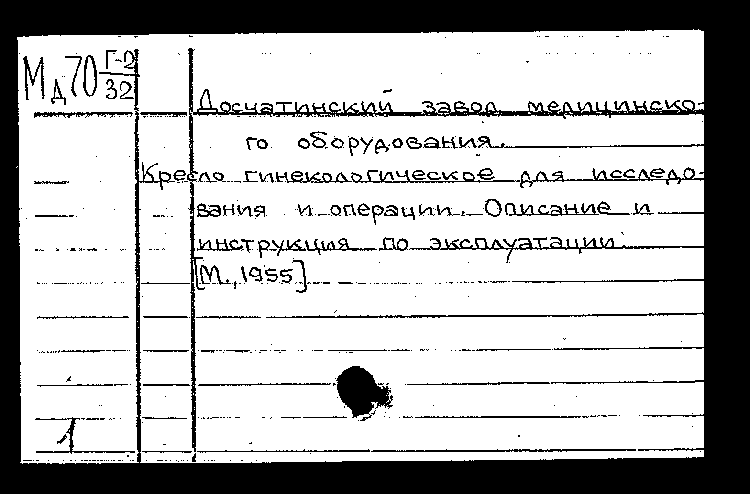 Мд70 Г-2/32
Досчатинский завод медицинско-
го оборудования.
Кресло гинекологическое для исследо-
вания и операции. Описание и
инструкция по эксплуатации.
[М., 1955]
1